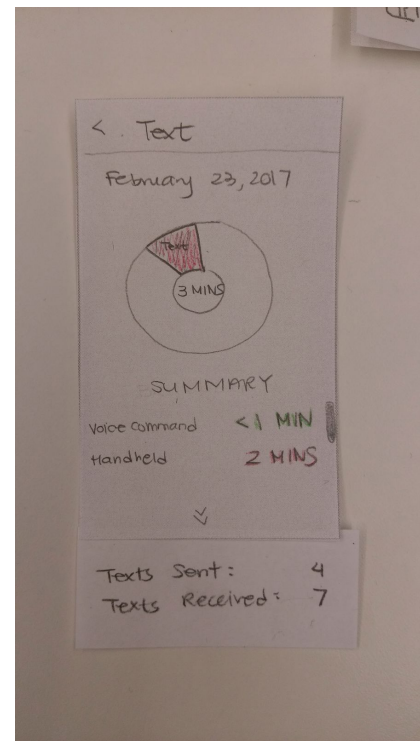 < Text
February 23, 2017
Text
3 MINS
SUMMARY
Voice Command <1 MIN
Handheld 2 MINS
Texts Sent: 4
Texts Received: 7